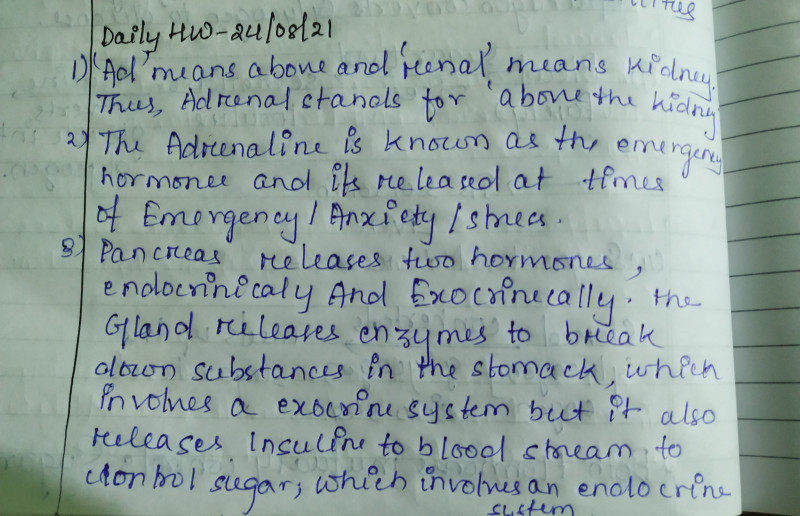 Daily HW-24/08/21
1) 'Ad' means above and 'renal' means kidney.
Thus, Adrenal stands for 'above the kidney
2) The Adrenaline is known as the emergency
hormone and its released at times
of Emergency/Anxiety/stress.
3) Pancreas releases two hormones,
endocrinicaly And Exocrinecally. the
Gland releases enzymes to break
down substances in the stomack, which
involves a exocrine system but it also
releases insuline to blood stream to
control sugar, which involves an endocrine
system